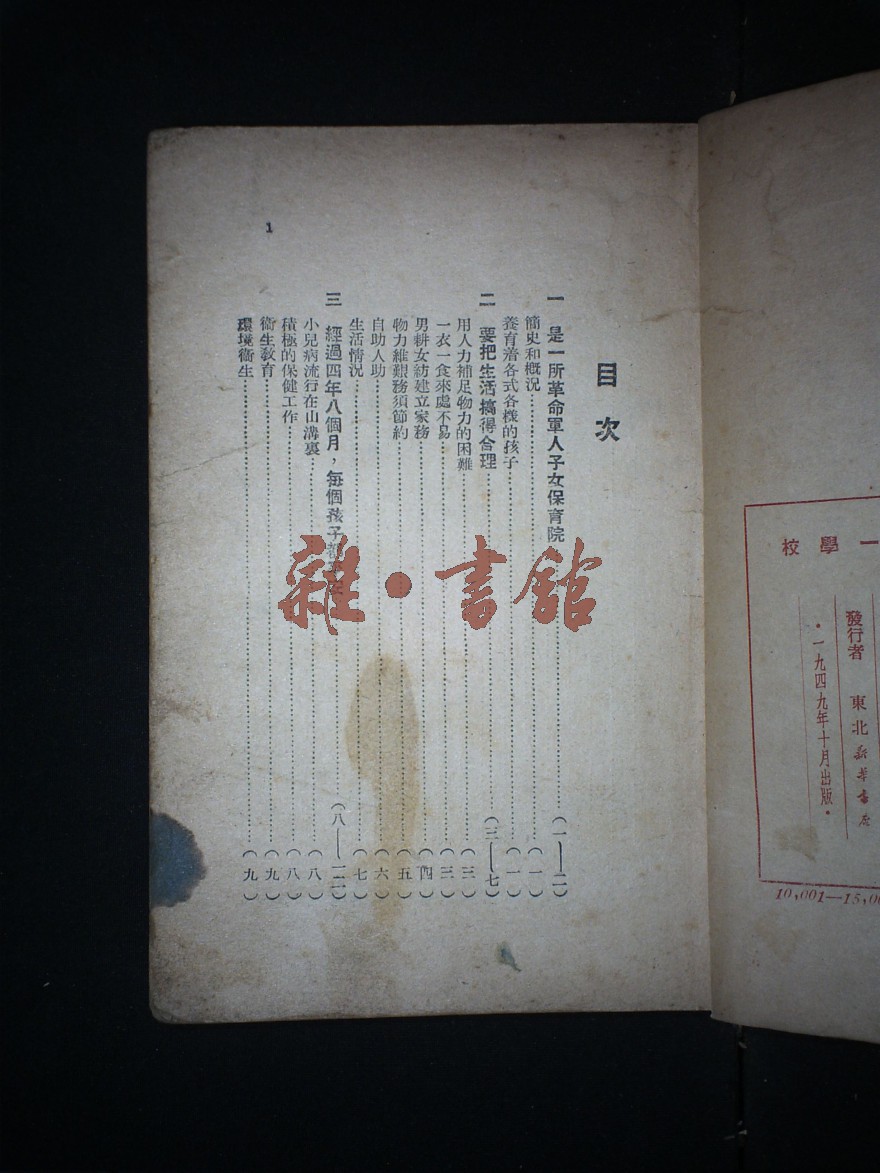 一 學 校
發行者 東北新華書店
•一九四九年十月出版•
10,001—15,0
目次
一 是一所革命軍人子女保育院……(一——二)
簡史和概况……(一)
養育着各式各樣的孩子……(一)
二 要把生活搞得合理……(三——七)
用人力補足物力的困難……(三)
一衣一食來處不易……(三)
男耕女紡建立家務……(四)
物力維艱務須節約……(五)
自助人助……(六)
生活情况……(七)
三 經過四年八個月，每個孩子都……(八——一二)
小兒病流行在山溝裏……(八)
積極的保健工作……(八)
衞生敎育……(九)
環境衞生……(九)
1
雜•書館